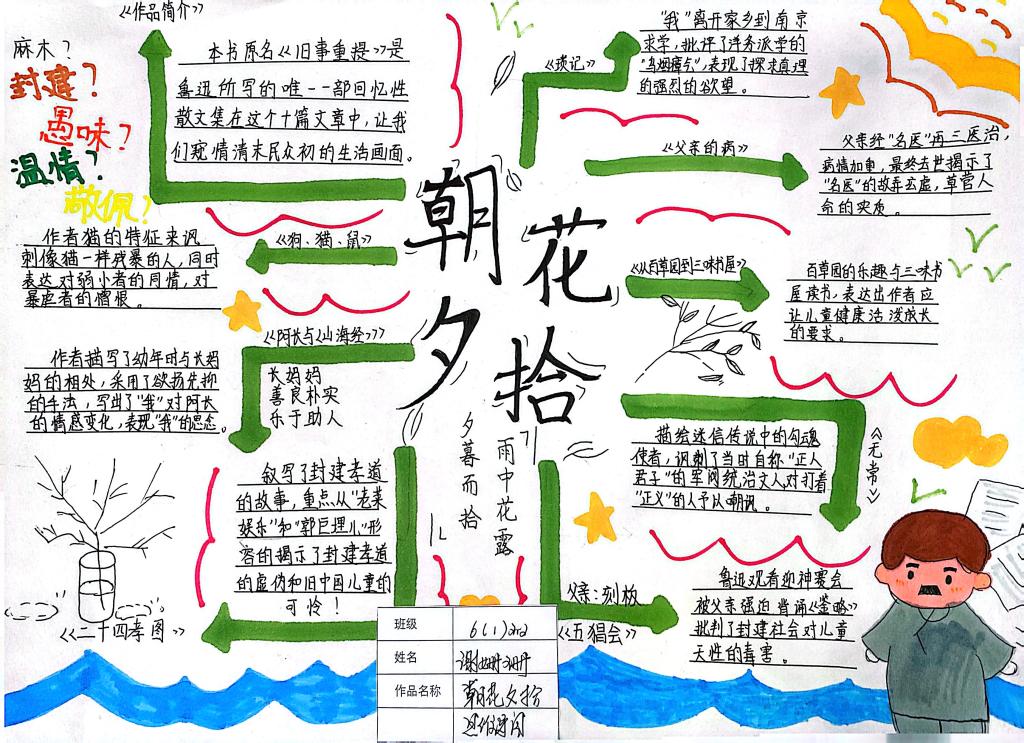 《作品简介》
本书原名《旧事重提》是
鲁迅所写的唯一一部回忆性
散文集在这个十篇文章中,让我
们窥情清末民众初的生活画面。
麻木?
封建?
愚味?
温情?
敬佩?
朝花
夕拾
《琐记》
"我"离开家乡到南京
求学,批评了洋务派学的
"乌烟瘴气",表现了探求真理
的强烈的欲望。
《父亲的病》
父亲经"名医"再三医治,
病情加重,最终去世揭示了
"名医"的故弄玄虚,草菅人
命的实质。
《狗、猫、鼠》
作者猫的特征来讽
刺像猫一样残暴的人,同时
表达对弱小者的同情,对
暴虐者的憎恨。
《从百草园到三味书屋》
百草园的乐趣与三味书
屋读书,表达出作者应
让儿童健康活泼成长
的要求。
《阿长与《山海经》》
长妈妈
善良朴实
乐于助人
作者描写了幼年时与长妈
妈的相处,采用了欲扬先抑
的手法,写出了"我"对阿长
的情感变化,表现"我"的思念。
《无常》
描绘迷信传说中的勾魂
使者,讽刺了当时自称"正人
君子"的军阀统治文人对打着
"正义"的人予以嘲讽。
雨中花露
夕暮而拾
叙写了封建孝道
的故事,重点从"老莱
娱亲"和"郭巨埋儿"形
容的揭示了封建孝道
的虚伪和旧中国儿童的
可怜!
《二十四孝图》
父亲:刻板
《五猖会》
鲁迅观看迎神赛会
被父亲强迫背诵《鉴略》
批判了封建社会对儿童
天性的毒害。
班级
6(1)
姓名
作品名称
朝花夕拾